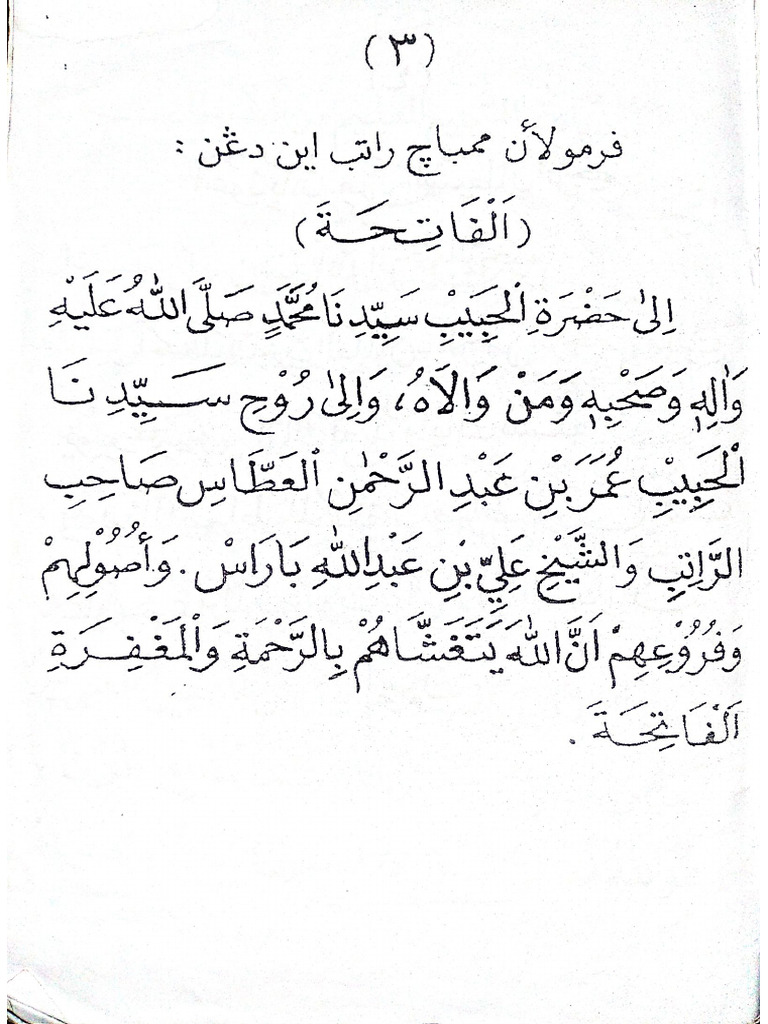 (٣)
فرمولأن ممباچ راتب اين دڠن :
(اَلْفَاتِحَةَ)
اِلىٰ حَضْرَةِ الْحَبِيْبِ سَيِّدِنَا مُحَمَّدٍ صَلَّى اللّٰهُ عَلَيْهِ
وَاٰلِهٖ وَصَحْبِهٖ وَمَنْ وَالَاهُ، وَاِلىٰ رُوْحِ سَيِّدِنَا
الْحَبِيْبِ عُمَرَ بْنِ عَبْدِ الرَّحْمٰنِ الْعَطَّاسِ صَاحِبِ
الرَّاتِبِ وَالشَّيْخِ عَلِيِّ بْنِ عَبْدِ اللّٰهِ بَارَاسْ . وَأُصُوْلِهِمْ
وَفُرُوْعِهِمْ اَنَّ اللّٰهَ يَتَغَشَّاهُمْ بِالرَّحْمَةِ وَالْمَغْفِرَةِ
اَلْفَاتِحَةَ .